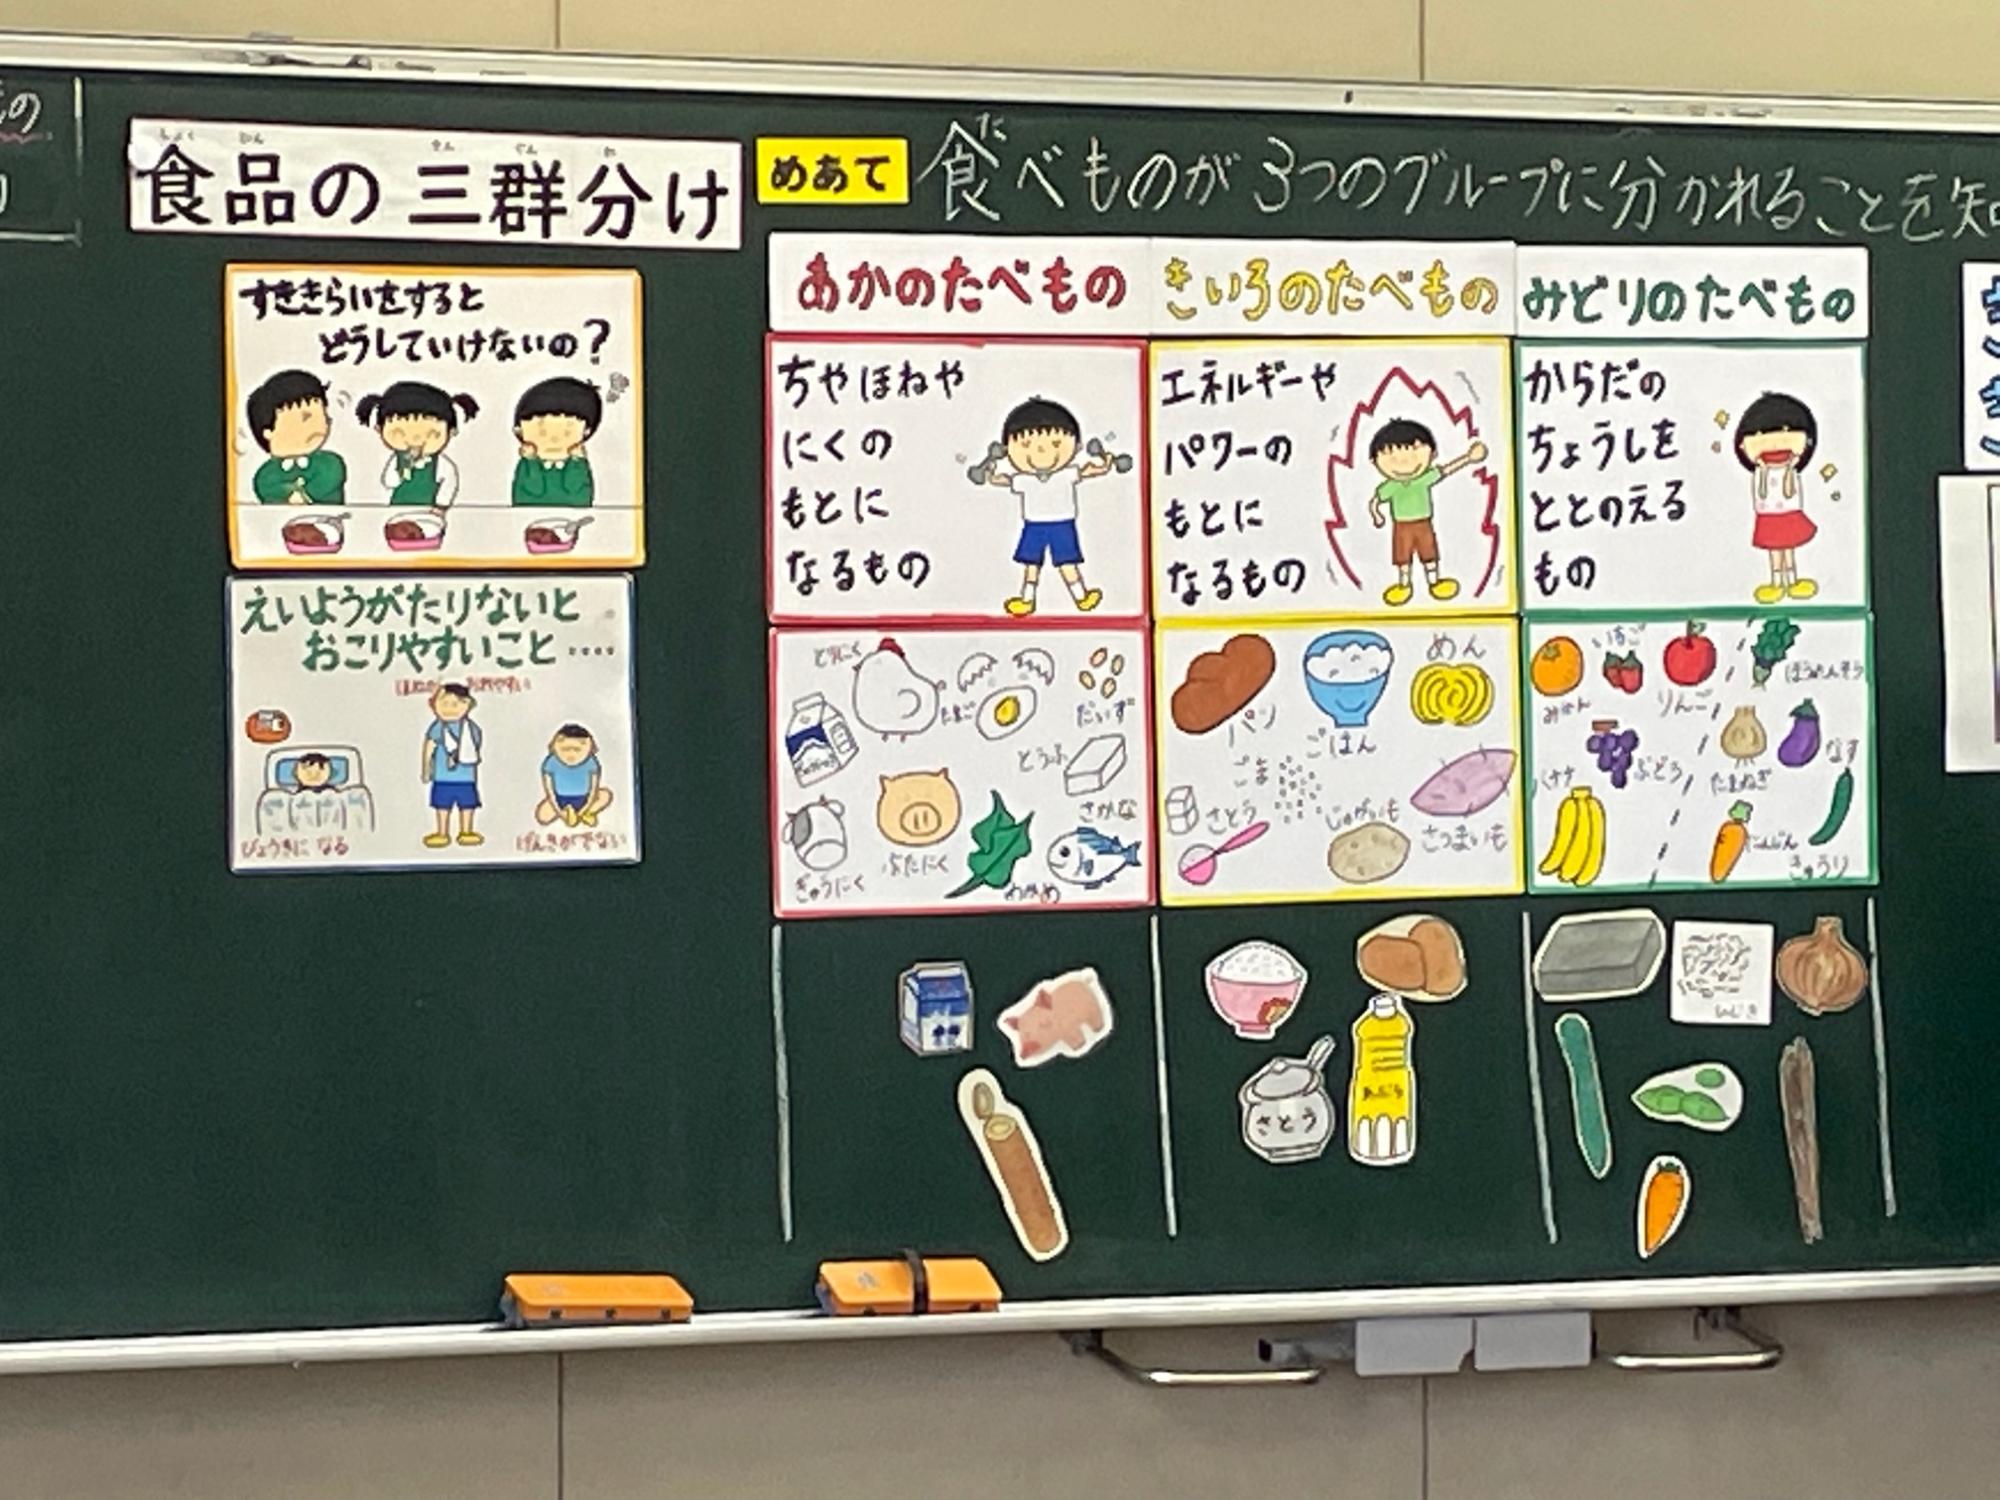 の
食品の三群分け
しょく ひん さん ぐん わ
めあて
食べものが3つのグループに分かれることを知
た
すききらいをすると
どうしていけないの?
えいようがたりないと
おこりやすいこと....
ほねが おれやすい
びょうきに なる
げんきがでない
あかのたべもの
ちやほねや
にくの
もとに
なるもの
とりにく
たまご
だいず
とうふ
さかな
ぎゅうにく
ぶたにく
わかめ
きいろのたべもの
エネルギーや
パワーの
もとに
なるもの
パン
ごはん
めん
ごま
さとう
じゃがいも
さつまいも
みどりのたべもの
からだの
ちょうしを
ととのえる
もの
みかん
いちご
りんご
ほうれんそう
ぶどう
バナナ
たまねぎ
なす
にんじん
きゅうり
さとう
あぶら